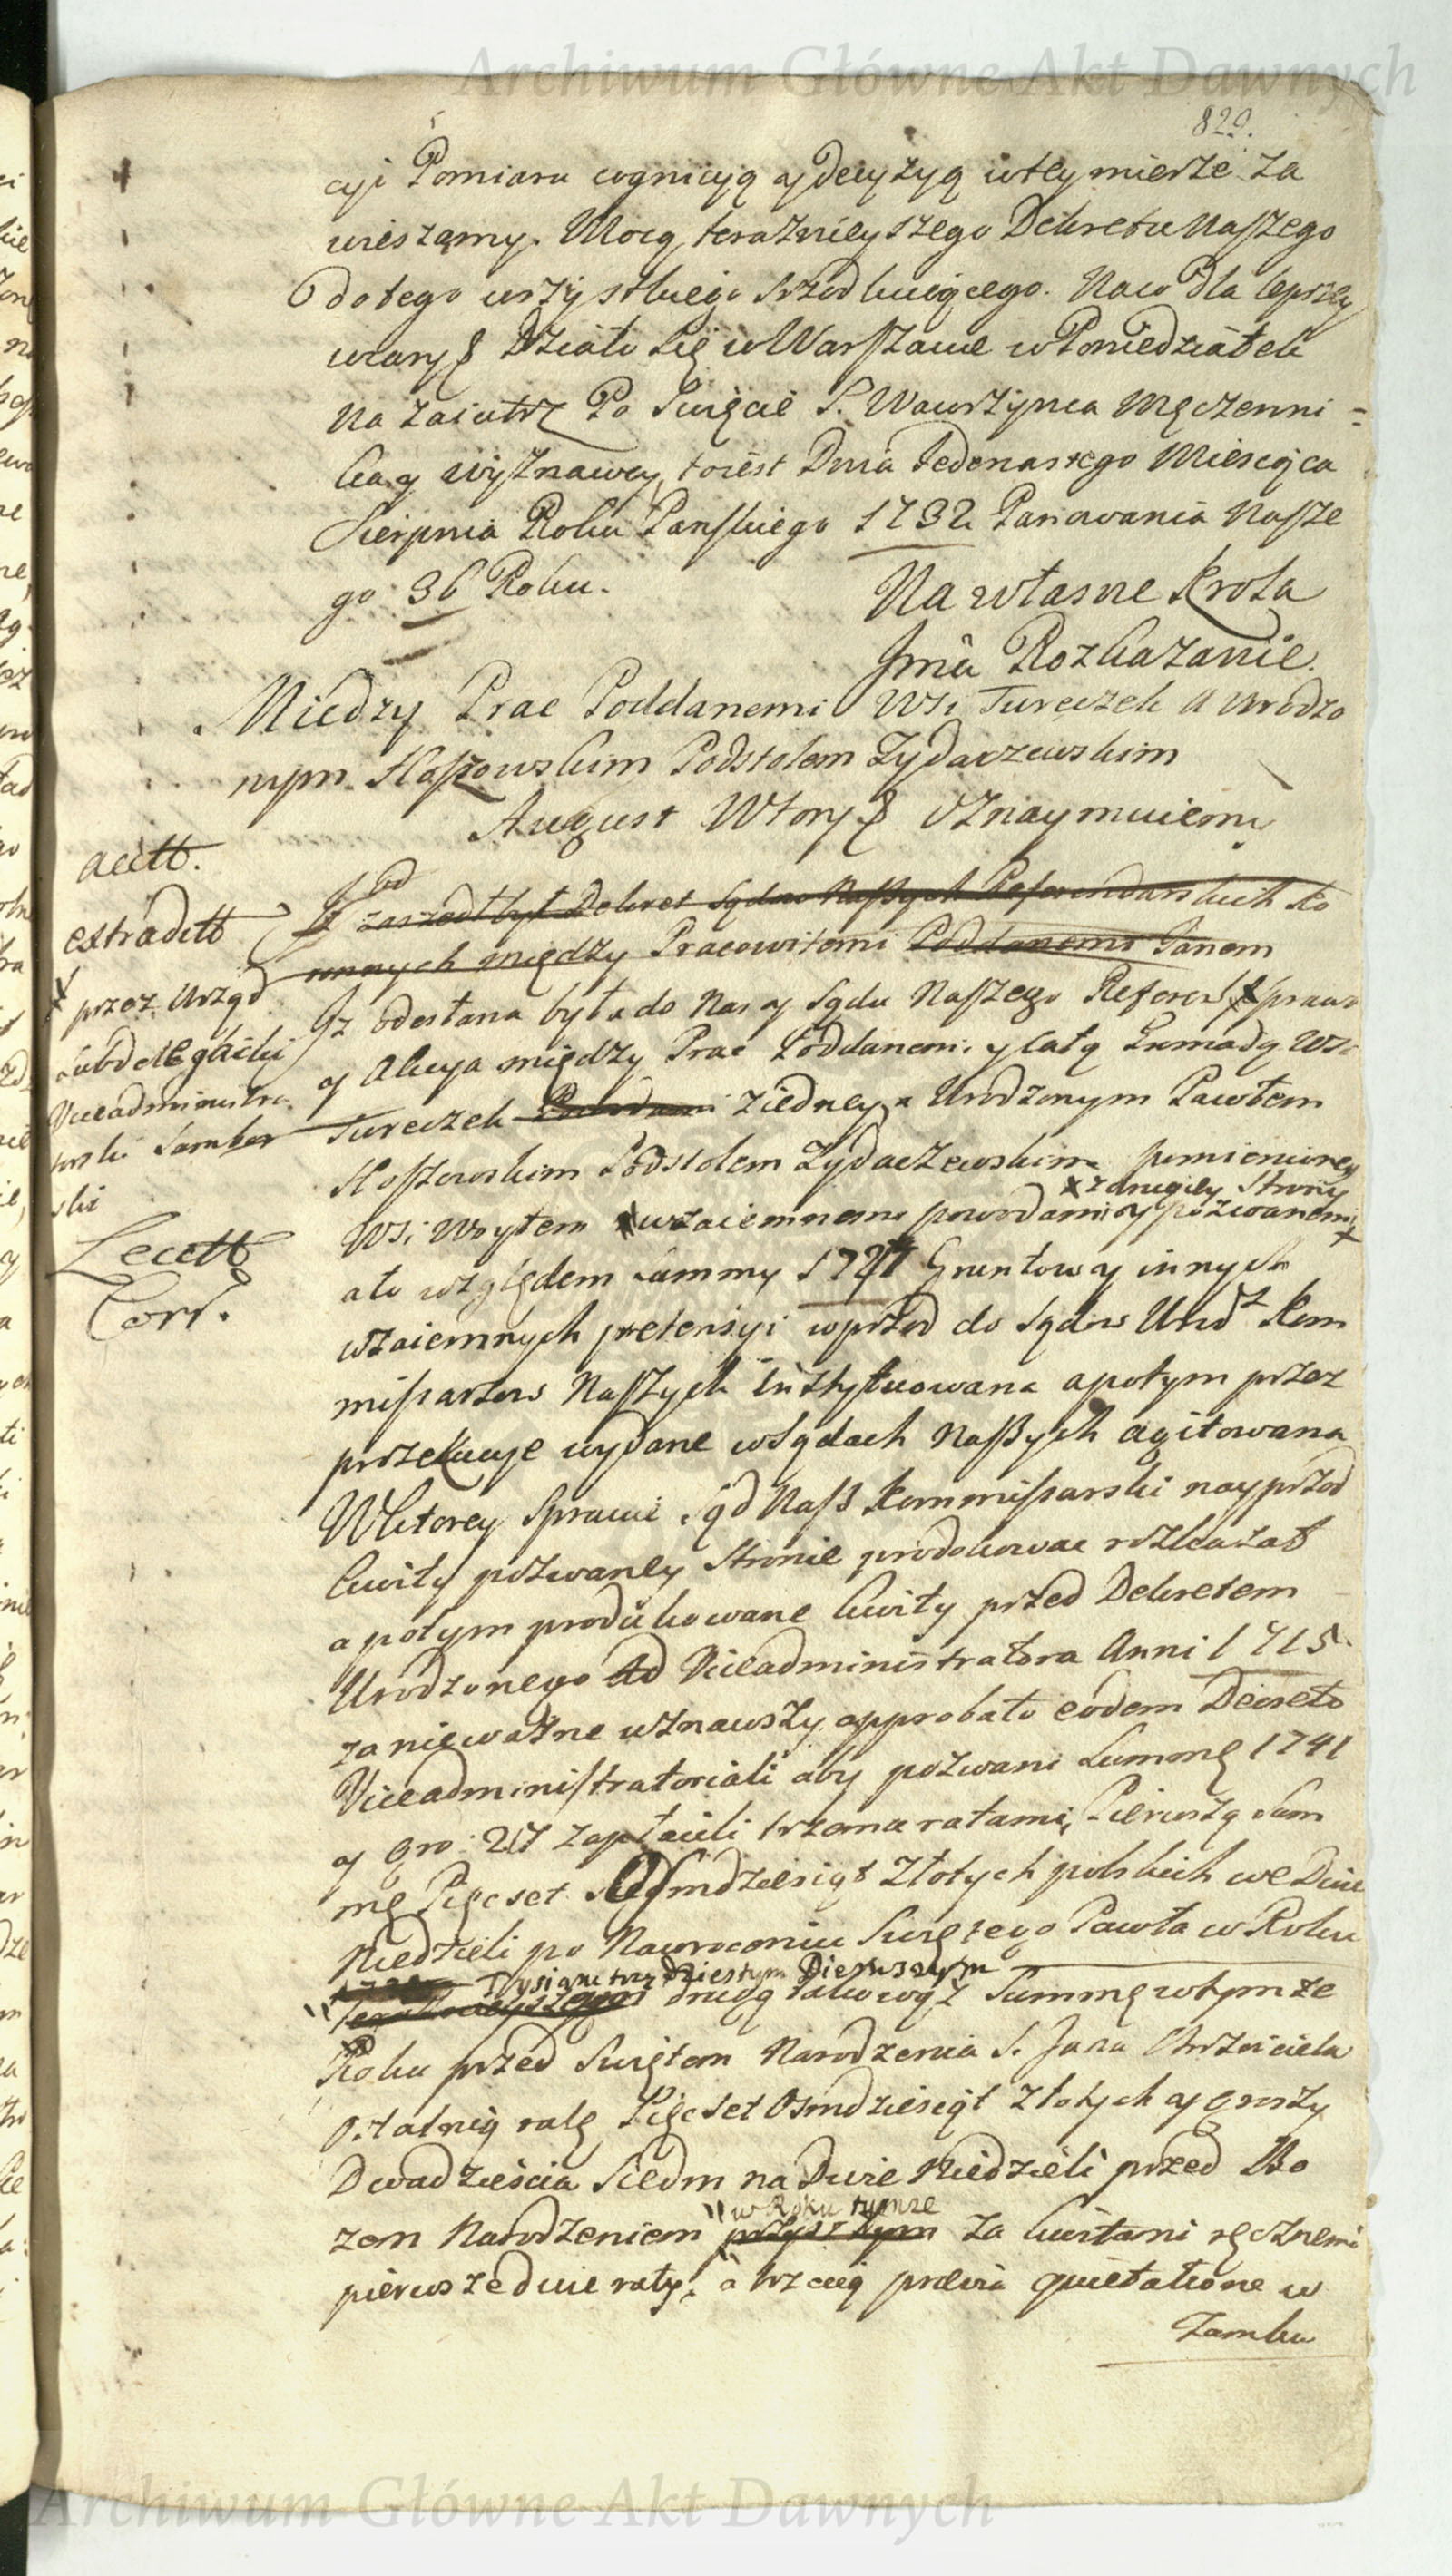 Archiwum Główne Akt Dawnych
829.
cyi Pomiaru cognicyą y decyzyą w tey mierze za
wieszamy. Mocą teraznieyszego Dekretu Naszego
do tego wszystkiego szrodkuiącego. Na co dla lepszey
wiary § Działo się w Warszawie w Poniedziałek
Na zaiutrz Po Swięcie S. Wawrzynca Męczenni =
ka y wyznawcy, to iest Dnia Jedenastego Miesiąca
Sierpnia Roku Panskiego 1732 Panowania Nasze
go 36 Roku.
Na własne Krola
Jmci Rozkazanie.
Miedzy Prac Poddanemi Wsi Tureczek a Urodzo
nym Hoszowskim Podstolem Zydaczewskim
August Wtory § Oznaymuiemy
actt.
extraditt
przez Urząd
subdelegacki
Viceadministra
torski Sambor
ski
Lecutt
Corr.
Iz zaszedł był Dekret Sądow Naszych Referendarskich Ko
ronnych między Pracowitemi Poddanemi Janem
Jz odesłana była do Nas y Sądu Naszego Referen Sprawa
y Akcya między Prac Poddanemi y całą Gromadą Wsi
Tureczek z iedney, a Urodzonym Pawłem
Hoszowskim Podstolem Zydaczewskim pomienioney
x z drugiey Strony
Wsi Woytem x wzaiemnemi powodami y pozwanemi x
a to względem summy 1741 Gruntow y innych
wzaiemnych pretensyi wprzod do Sądow Urodz Kom
missarzow Naszych instytuowana a potym przez
przekucye wydane w Sądach Naszych agitowana
W ktorey Sprawie Sąd Nasz Kommissarski nayprzod
kwity pozwaney Stronie produkowac rozkazał
a potym produkowane kwity przed Dekretem
Urodzonego Ad Viceadministratora Anni 1715
za nieważne uznawszy approbato eodem Decreto
Viceadministratoriali aby pozwani Summę 1741
y gro: 27 zapłacili trzema ratami, Pierwszą Sum
mę Pięcset Osmdziesiąt Złotych polskich we Dwie
Niedzieli po Nawroceniu Swiętego Pawła w Roku
Tysiąc trzydziestym Pierwszym
drugą takowąż Summę w tymze
Roku przed Swiętem Narodzenia S. Jana Chrzciciela
Ostatnią ratę Pięcset Osmdziesiąt Złotych y groszy
Dwadzieścia Siedm na Dwie Niedzieli przed Bo
w Roku tymze
zem Narodzeniem przyszłym za kwitami ręcznemi
pierwsze dwie raty, a trzcią prævia quietatione w
Zamku
Archiwum Główne Akt Dawnych